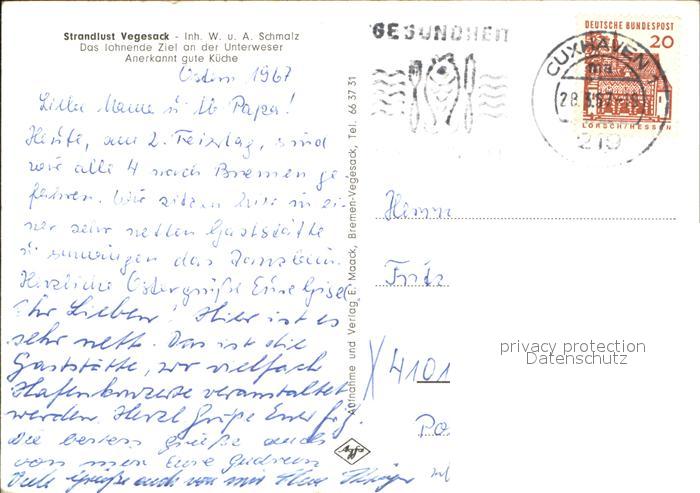 Strandlust Vegesack - Inh. W. u. A. Schmalz
Das lohnende Ziel an der Unterweser
Anerkannt gute Küche
Ostern 1967
Liebe Mama u. lb Papa!
Heute, am 2. Feiertag, sind
wir alle 4 nach Bremen ge
fahren. Wir sitzen hier in ei-
ner sehr netten Gaststätte
u. schwingen das Tanzbein.
Herzliche Ostergrüße Eure Gisel
Ihr Lieben! Hier ist es
sehr nett. Das ist die
Gaststätte, wo vielfach
Hafenkonzerte veranstaltet
werden. Herzl Grüße Euer
Die besten Grüße auch
von mir Eure Gudrun
Viele Grüße auch von mir Euer
Aufnahme und Verlag E. Maack, Bremen-Vegesack, Tel. 66 37 31
Agfa
GESUNDHEIT
DEUTSCHE BUNDESPOST
20
LORSCH/HESSEN
CUXHAVEN 1
ma
28.3.67
219
Herrn
Fritz
4101
Po
privacy protection
Datenschutz